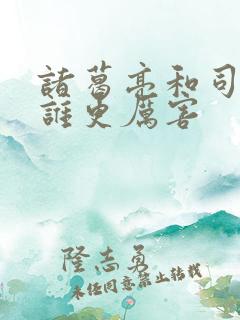 諸葛亮和司
誰更厲害
隆志勇
未经同意禁止转载